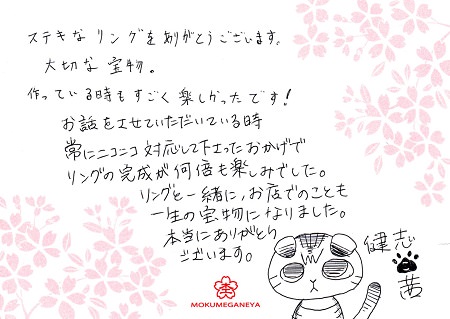 ステキなリングをありがとうございます。
大切な宝物。
作っている時もすごく楽しかったです!
お話をさせていただいている時
常にニコニコ対応して下さったおかげで
リングの完成が何倍も楽しみでした。
リングと一緒に、お店でのことも
一生の宝物になりました。
本当にありがとう
ございます。
健志
茜
MOKUMEGANEYA